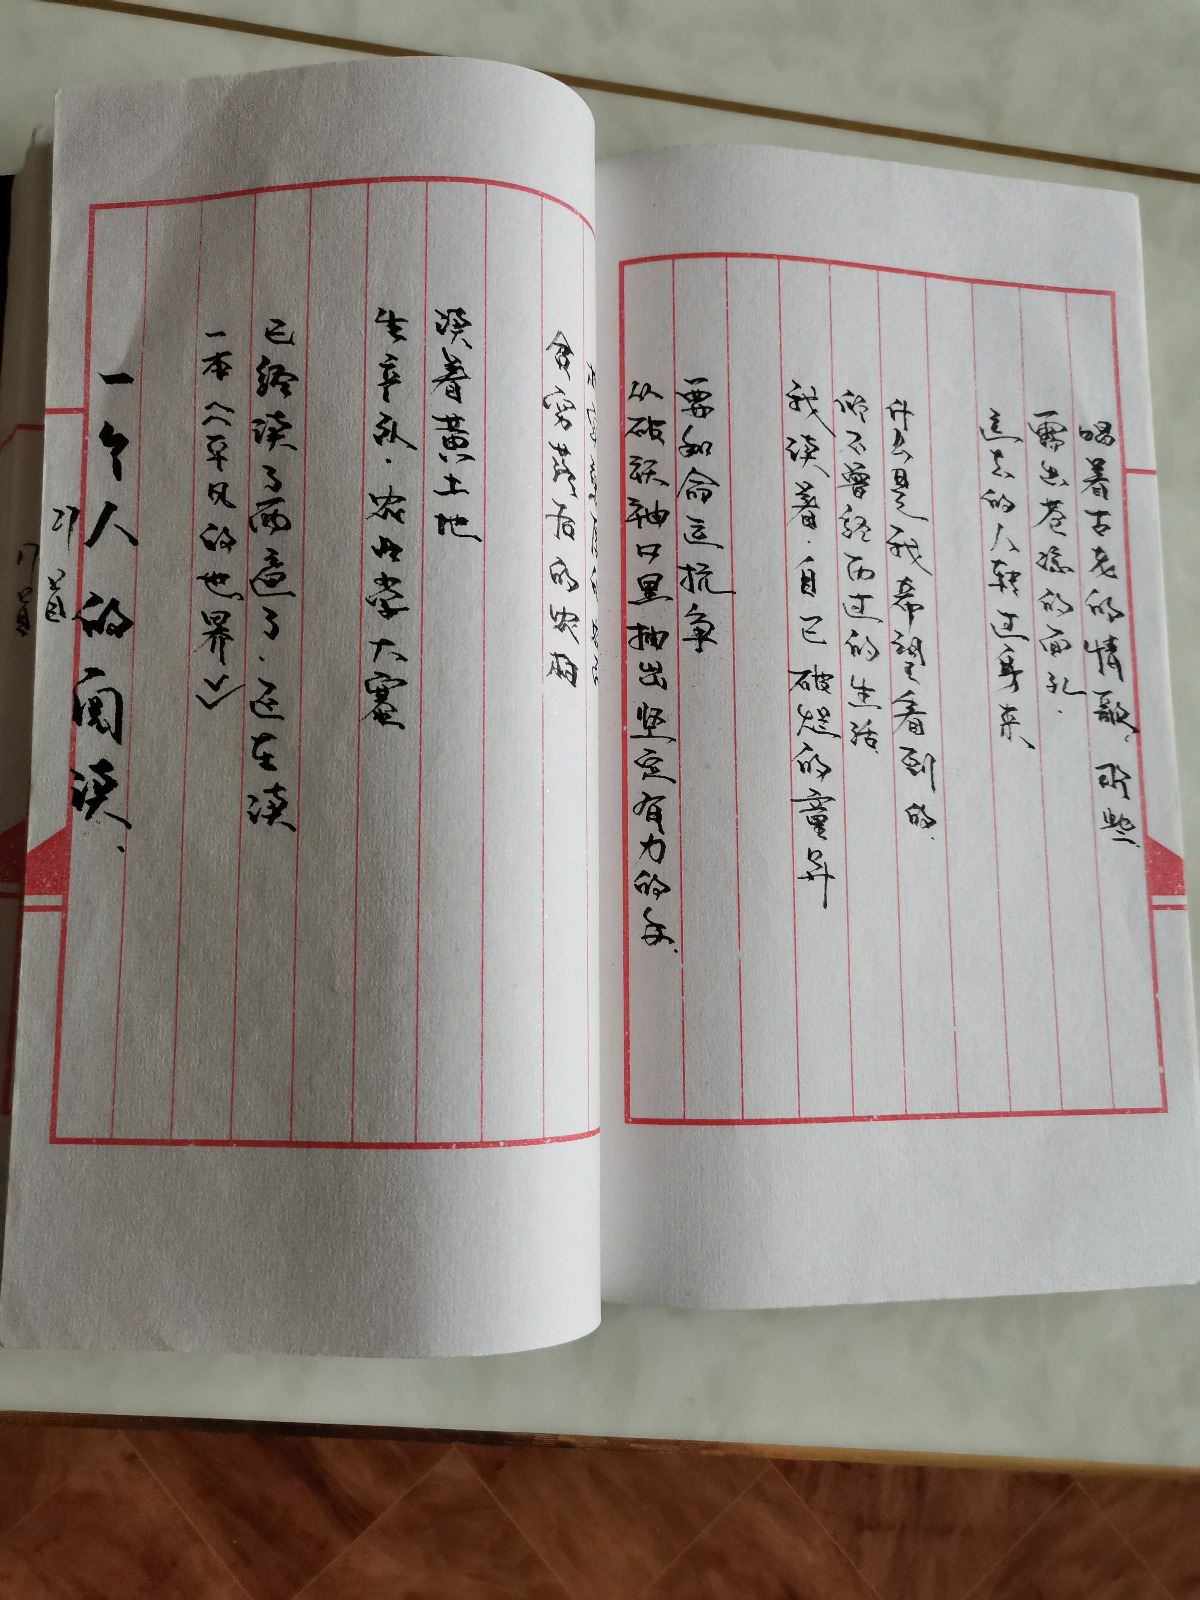 21首
一个人的阅读、
一本《平凡的世界》
已经读了两遍了.还在读
读着黄土地
贫穷落后的农村
从破袄袖口里抽出坚定有力的手.
要和命运抗争
我读着.自己破烂的童年
那不曾经历过的生活
什么是我希望看到的
远去的人转过身来
露出苍凉的面孔.
唱着古老的情歌,那些